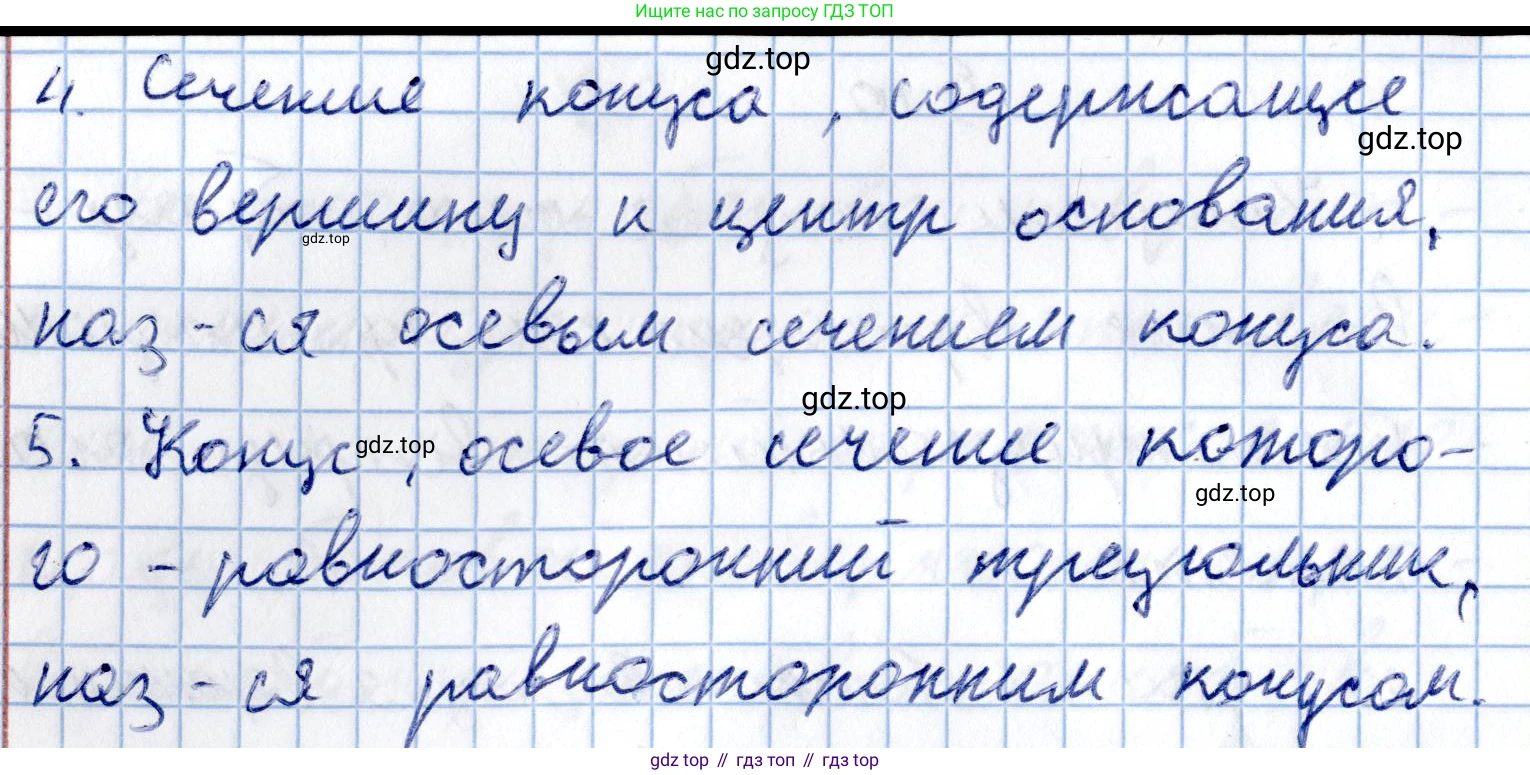 Ищите нас по запросу ГДЗ ТОП
gdz.top
4. Сечение конуса, содержащее
gdz.top
его вершину и центр основания,
gdz.top
наз-ся осевым сечением конуса.
gdz.top
5. Конус, осевое сечение которо-
gdz.top
gdz.top
го - равносторонний треугольник,
наз-ся равносторонним конусом.
gdz.top // гдз топ // гдз top